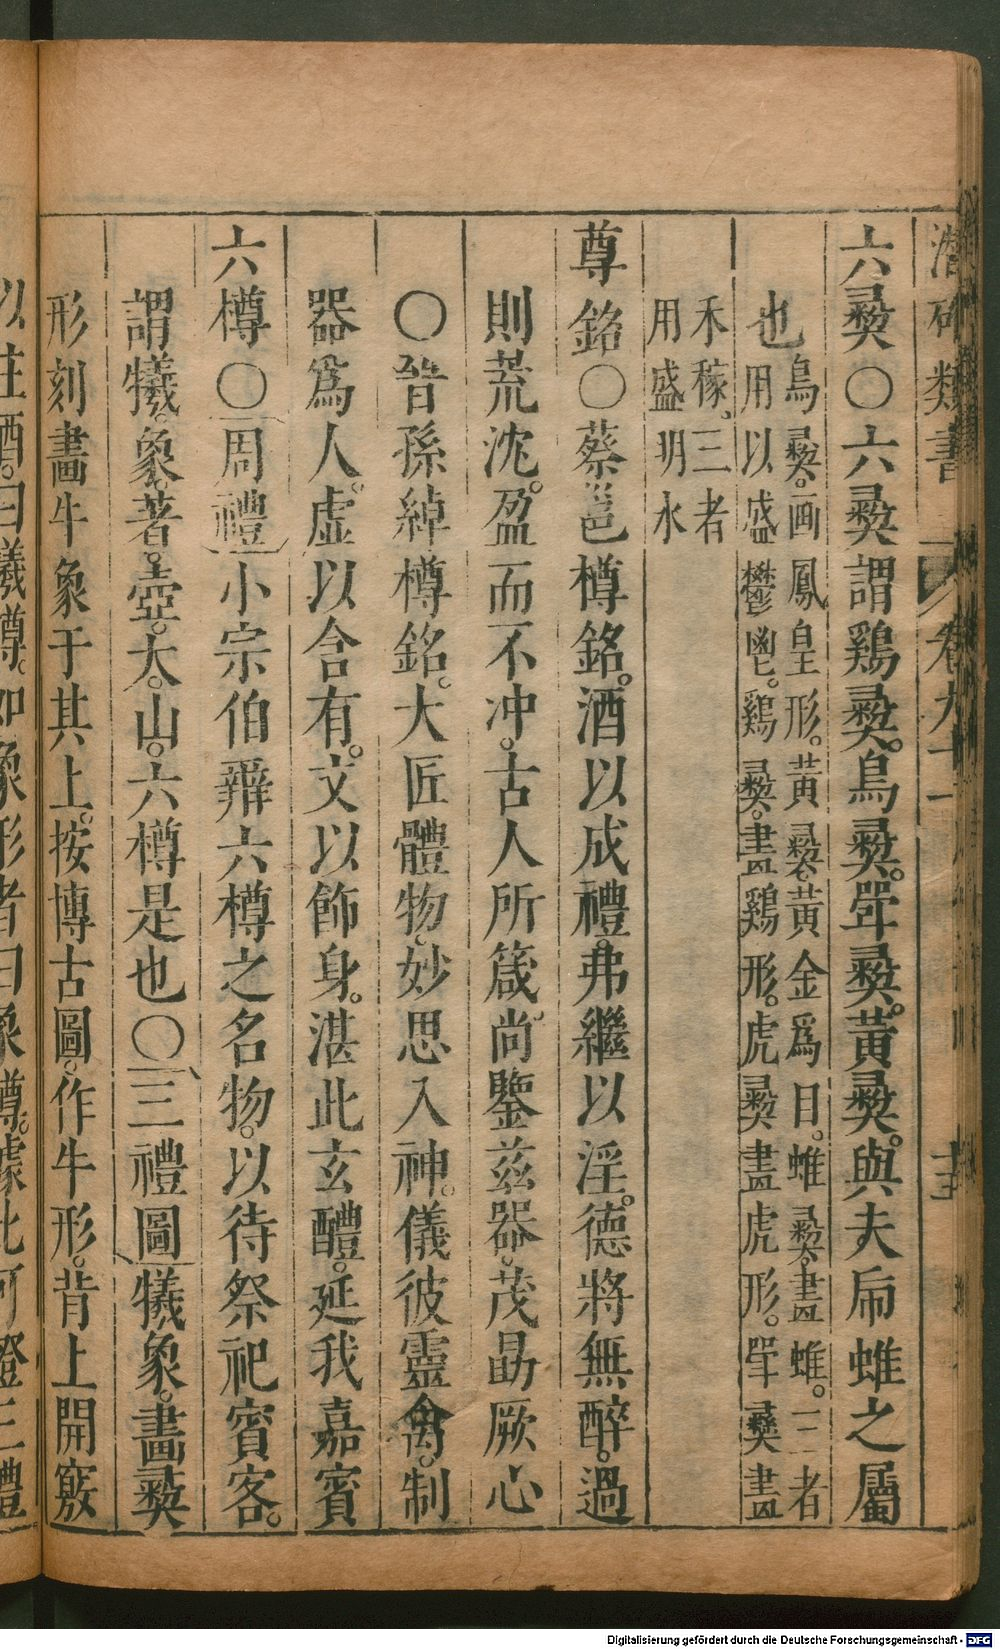 潛確類書 卷九十一 十三
六彞〇六彞謂鷄彞。鳥彞。斝彞。黃彞。與夫乕蜼之屬
也
鳥彞。画鳳皇形。黃彞。黃金爲目。蜼彞。畫蜼。三者
用以盛鬱鬯。鷄彞。畫鷄形。虎彞畫虎形。斝彞畫
禾稼、三者
用盛明水
尊銘〇蔡邕樽銘。酒以成禮。弗繼以淫。德將無醉。過
則荒沈。盈而不冲。古人所箴。尚鑒兹器。茂勗厥心
〇晉孫綽樽銘。大匠體物。妙思入神。儀彼靈禽。制
器爲人。虛以含有。文以飾身。湛此玄醴。延我嘉賓
六樽〇周禮小宗伯辨六樽之名物。以待祭祀賓客。
謂犧。象。著。壺。大。山。六樽是也〇三禮圖犧象。畫彞
形刻畫牛象于其上。按博古圖。作牛形。背上開竅
以注酒。曰犧樽。如象形者曰象樽。據此可證三禮
Digitalisierung gefördert durch die Deutsche Forschungsgemeinschaft - DFG